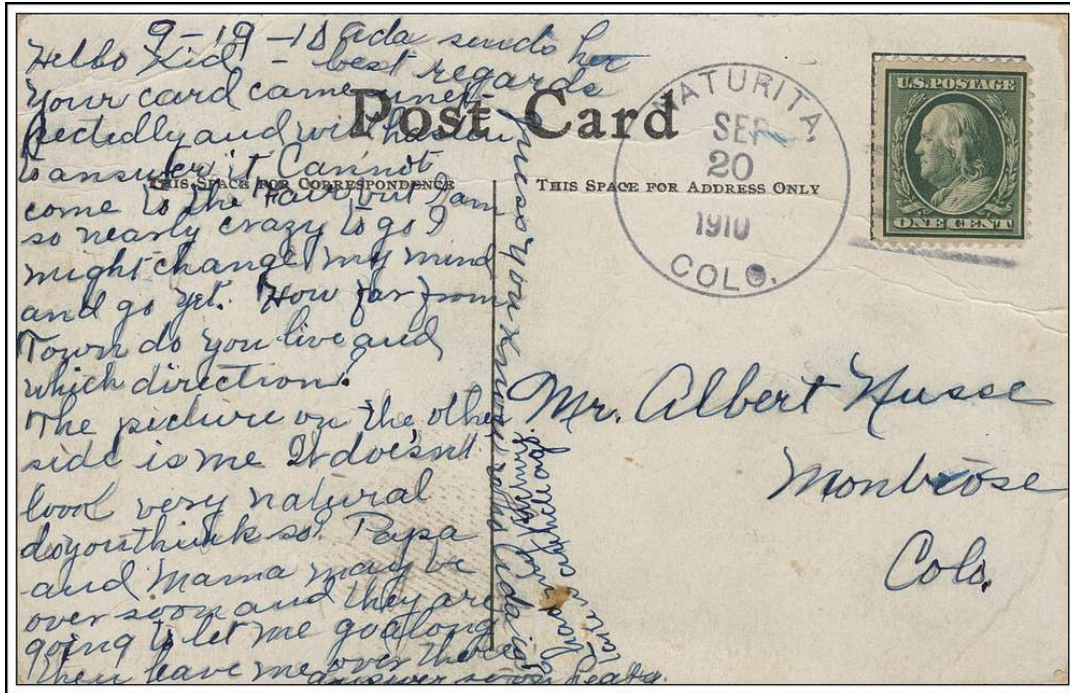 9-19-10 Ada sends her
Hello Kid! - best regards
Your card came unex-
pectedly and will hasten
to answer it Cannot
come to the Fair but I am
so nearly crazy to go I
might change my mind
and go yet. How far from
Town do you live and
which direction?
The picture on the other
side is me It doesn't
lool very natural
do you think so? Papa
and Mama may be
over soon and they are
going to let me go along
then leave me over there
answer soon
guess you know who Ada is
Post Card
THIS SPACE FOR CORRESPONDENCE
THIS SPACE FOR ADDRESS ONLY
NATURITA,
SEP
20
1910
COLO.
U.S. POSTAGE
ONE CENT
Mr. Albert Husse
Montrose
Colo.